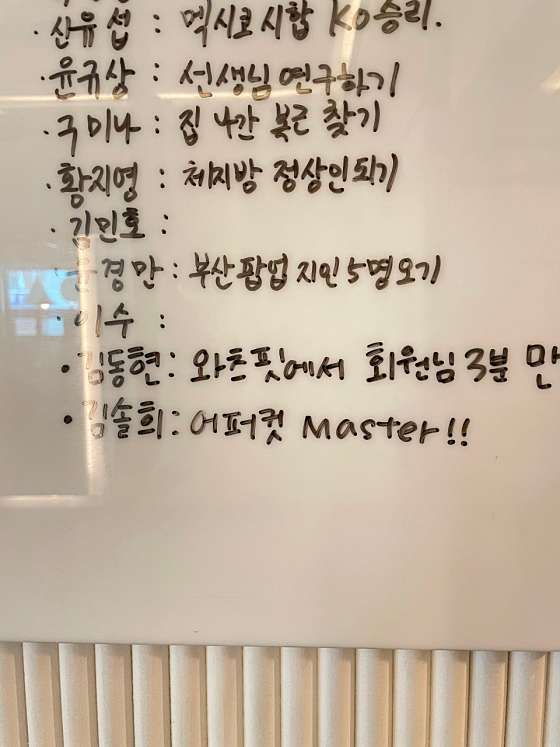 · 산유섭 : 멕시코시합 KO승리.
· 윤규상 : 선생님 연구하기
· 구미나 : 집 나간 복근 찾기
· 황지영 : 체지방 정상인되기
· 김민호 :
· 윤경만 : 부산팝업 지인 5명오기
· 이수 :
· 김동현 : 와츠핏에서 회원님 3분 만
· 김솔희 : 어퍼컷 Master!!